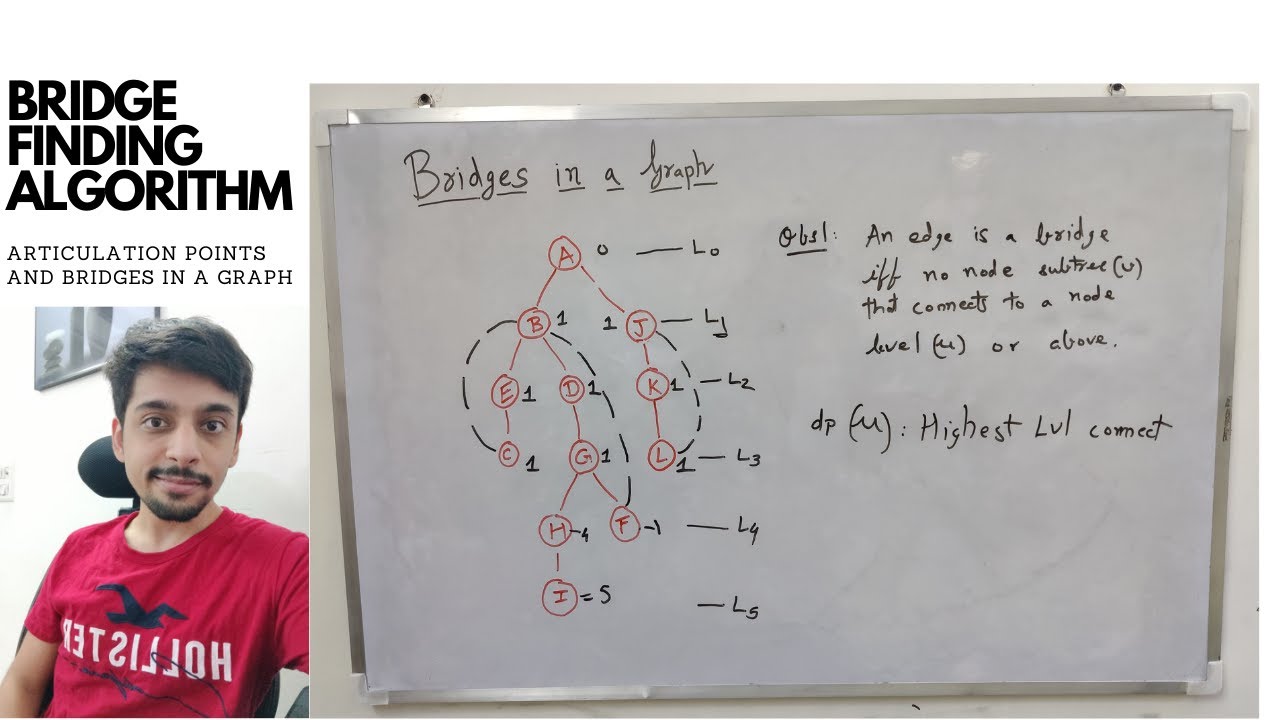 BRIDGE
FINDING
ALGORITHM
ARTICULATION POINTS
AND BRIDGES IN A GRAPH
HOLLISTER
Bridges in a Graph
A 0 — L0
B 1 1 J — L1
E 1 D 1 K 1 — L2
C 1 G 1 L 1 — L3
H -4 F -1 — L4
I = 5 — L5
Obs1: An edge is a bridge
iff no node subtree(v)
that connects to a node
level (u) or above.
dp (u): Highest Lvl connect